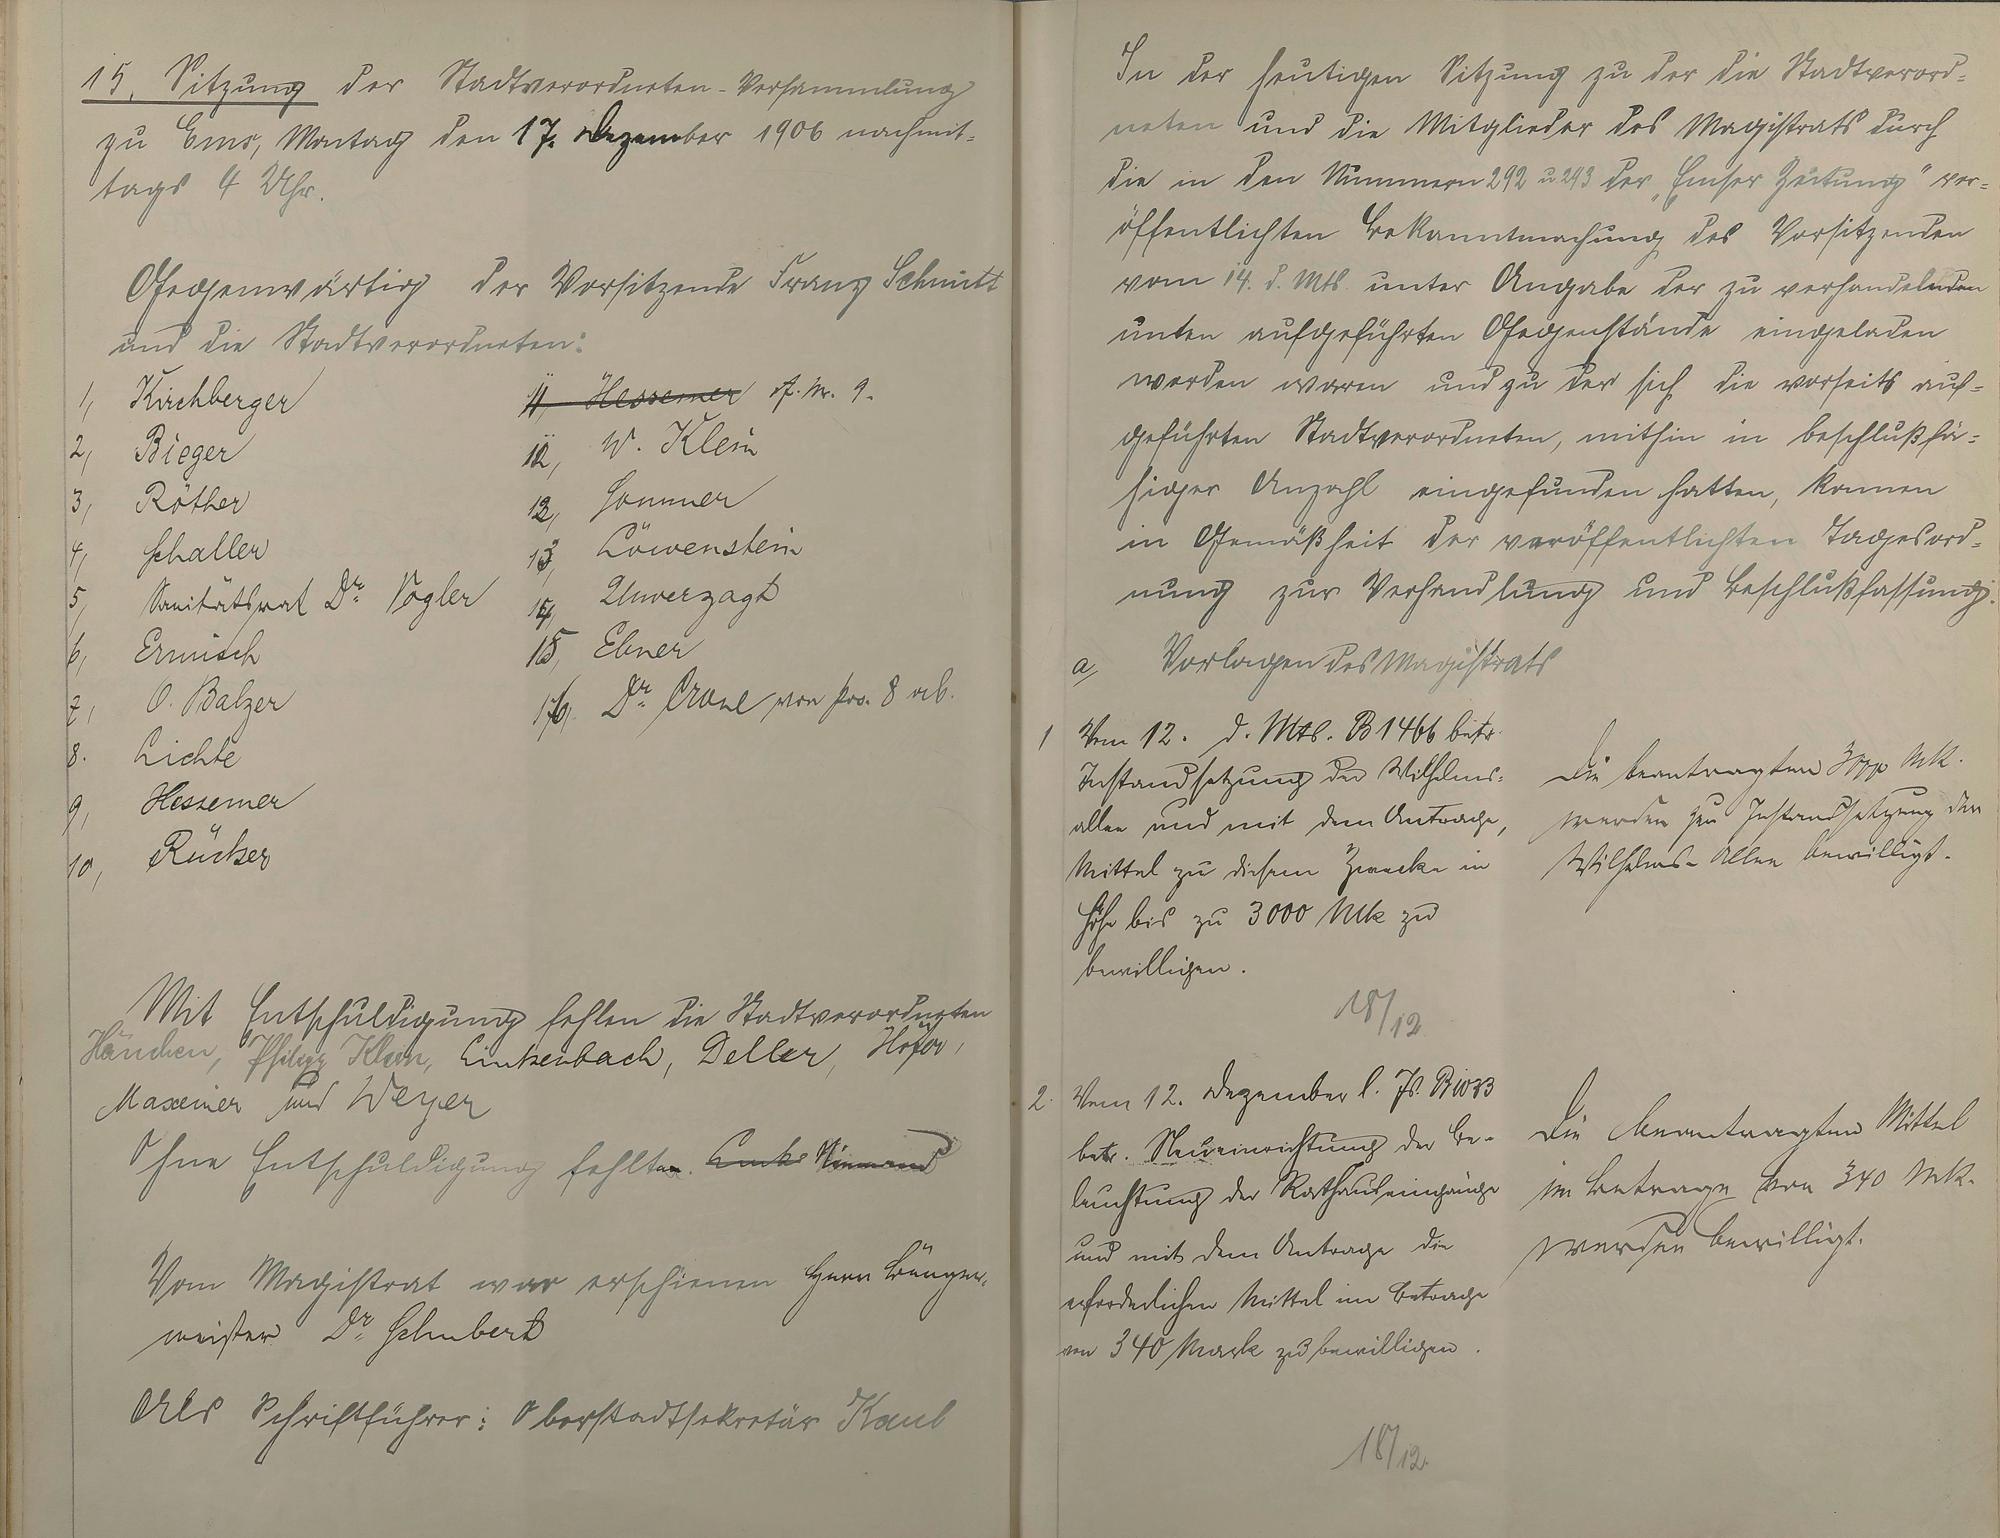 15. Sitzung der Stadtverordneten-Versammlung
zu Ems, Montag den 17. Dezember 1906 nachmit-
tags 4 Uhr.
Gegenwärtig der Vorsitzende Franz Schmitt
und die Stadtverordneten:
1, Kirchberger
2, Bieger
3, Röther
4, Schaller
5, Sanitätsrat Dr. Vogler
6, Ermisch
7, O. Balzer
8. Lichte
9, Hessemer
10, Rücker
11, Hessemer cf. Nr. 9.
W. Klein
Sommer
Löwenstein
Unverzagt
Ebner
16, Dr. von Pos. 8 ab.
Mit Entschuldigung fehlen die Stadtverordneten
Hänchen, Philipp Klein, Linkenbach, Deller, Höfer,
Maxeiner und Weyer
Ohne Entschuldigung fehlten. Links Niemand
Vom Magistrat war erschienen Herr Bürger-
meister Dr. Schubert
Als Schriftführer: Oberstadtsekretär Kaul
In der heutigen Sitzung zu der die Stadtverord-
neten und die Mitglieder des Magistrats durch
die in den Nummern 292 u 293 der "Emser Zeitung" ver-
öffentlichten Bekanntmachung des Vorsitzenden
vom 14. d. Mts. unter Angabe der zu verhandelnden
unten aufgeführten Gegenstände eingeladen
worden waren und zu der sich die vorseits auf-
geführten Stadtverordneten, mithin in beschlußfä-
higer Anzahl eingefunden hatten, kamen
in Gemäßheit der veröffentlichten Tagesord-
nung zur Verhandlung und Beschlußfassung:
a, Vorlagen des Magistrats
1 Vom 12. d. Mts. B 1466 betr.
Instandsetzung der Wilhelms-
allee und mit dem Antrage,
Mittel zu diesem Zwecke in
Höhe bis zu 3000 Mk zu
bewilligen.
Die beantragten 3000 Mk.
werden zur Instandsetzung der
Wilhelms-Allee bewilligt.
18/12
2. Vom 12. Dezember l. Js.
betr. Neueinrichtung der Be-
leuchtung der Rathauseingänge
und mit dem Antrage die
erforderlichen Mittel im Betrage
von 340 Mark zu bewilligen.
Die beantragten Mittel
im Betrage von 340 Mk.
werden bewilligt.
18/12.